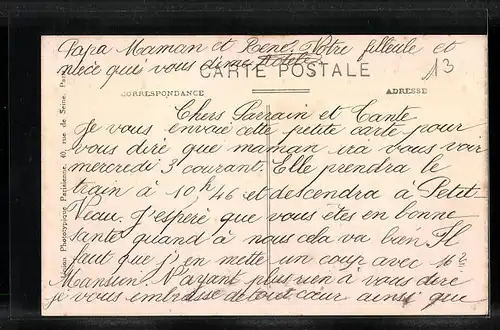 Papa Maman et René. Votre filleule et
nièce qui vous aime
CARTE POSTALE
13
CORRESPONDANCE
ADRESSE
Chers Parrain et Tante
Je vous envoie cette petite carte pour
vous dire que maman ira vous voir
mercredi 3 courant. Elle prendra le
train à 10h 46 et descendra à Petit
Veau. J'espère que vous êtes en bonne
santé quand à nous cela va bien Il
faut que j'en mette un coup avec
N'ayant plus rien à vous dire
je vous embrasse de tout cœur ainsi que
Phototypique Parisienne, 40, rue de Seine,